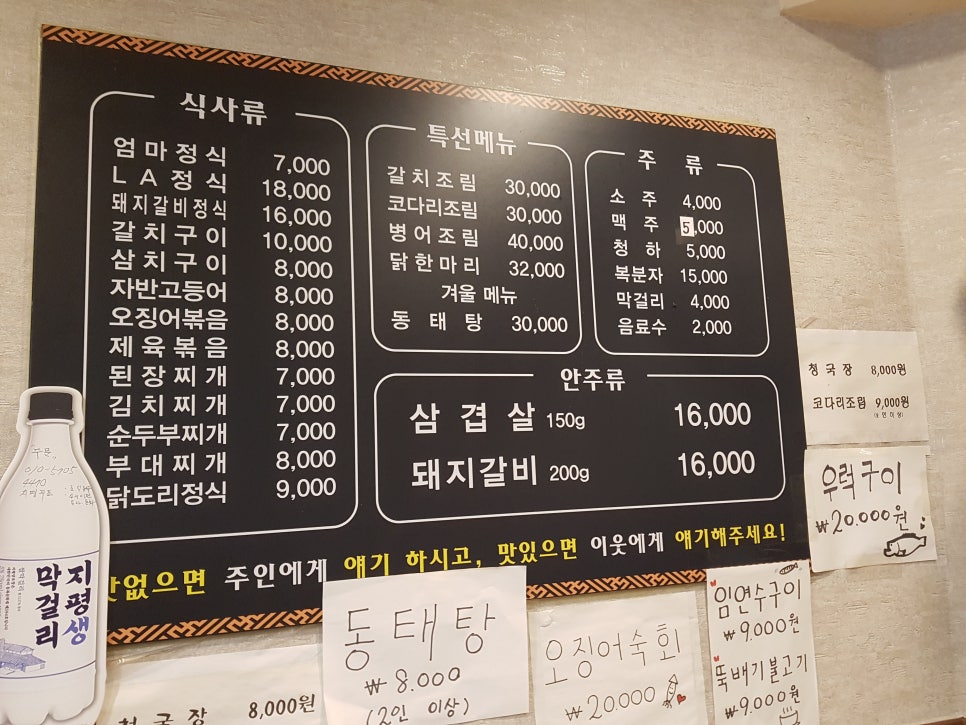 식사류
엄마정식 7,000
LA정식 18,000
돼지갈비정식 16,000
갈치구이 10,000
삼치구이 8,000
자반고등어 8,000
오징어볶음 8,000
제육볶음 8,000
된장찌개 7,000
김치찌개 7,000
순두부찌개 7,000
부대찌개 8,000
닭도리정식 9,000
특선메뉴
갈치조림 30,000
코다리조림 30,000
병어조림 40,000
닭한마리 32,000
겨울 메뉴
동태탕 30,000
주류
소주 4,000
맥주 5,000
청하 5,000
복분자 15,000
막걸리 4,000
음료수 2,000
안주류
삼겹살 150g 16,000
돼지갈비 200g 16,000
맛없으면 주인에게 얘기 하시고, 맛있으면 이웃에게 얘기해주세요!
청국장 8,000원
코다리조림 9,000원
(2인이상)
우럭구이
₩20.000원
지평생
막걸리
010-5705
4470
청국장 8,000원
동태탕
₩8.000
(2인 이상)
오징어숙회
₩20000
임연수구이
₩9.000원
뚝배기불고기
₩9.000원